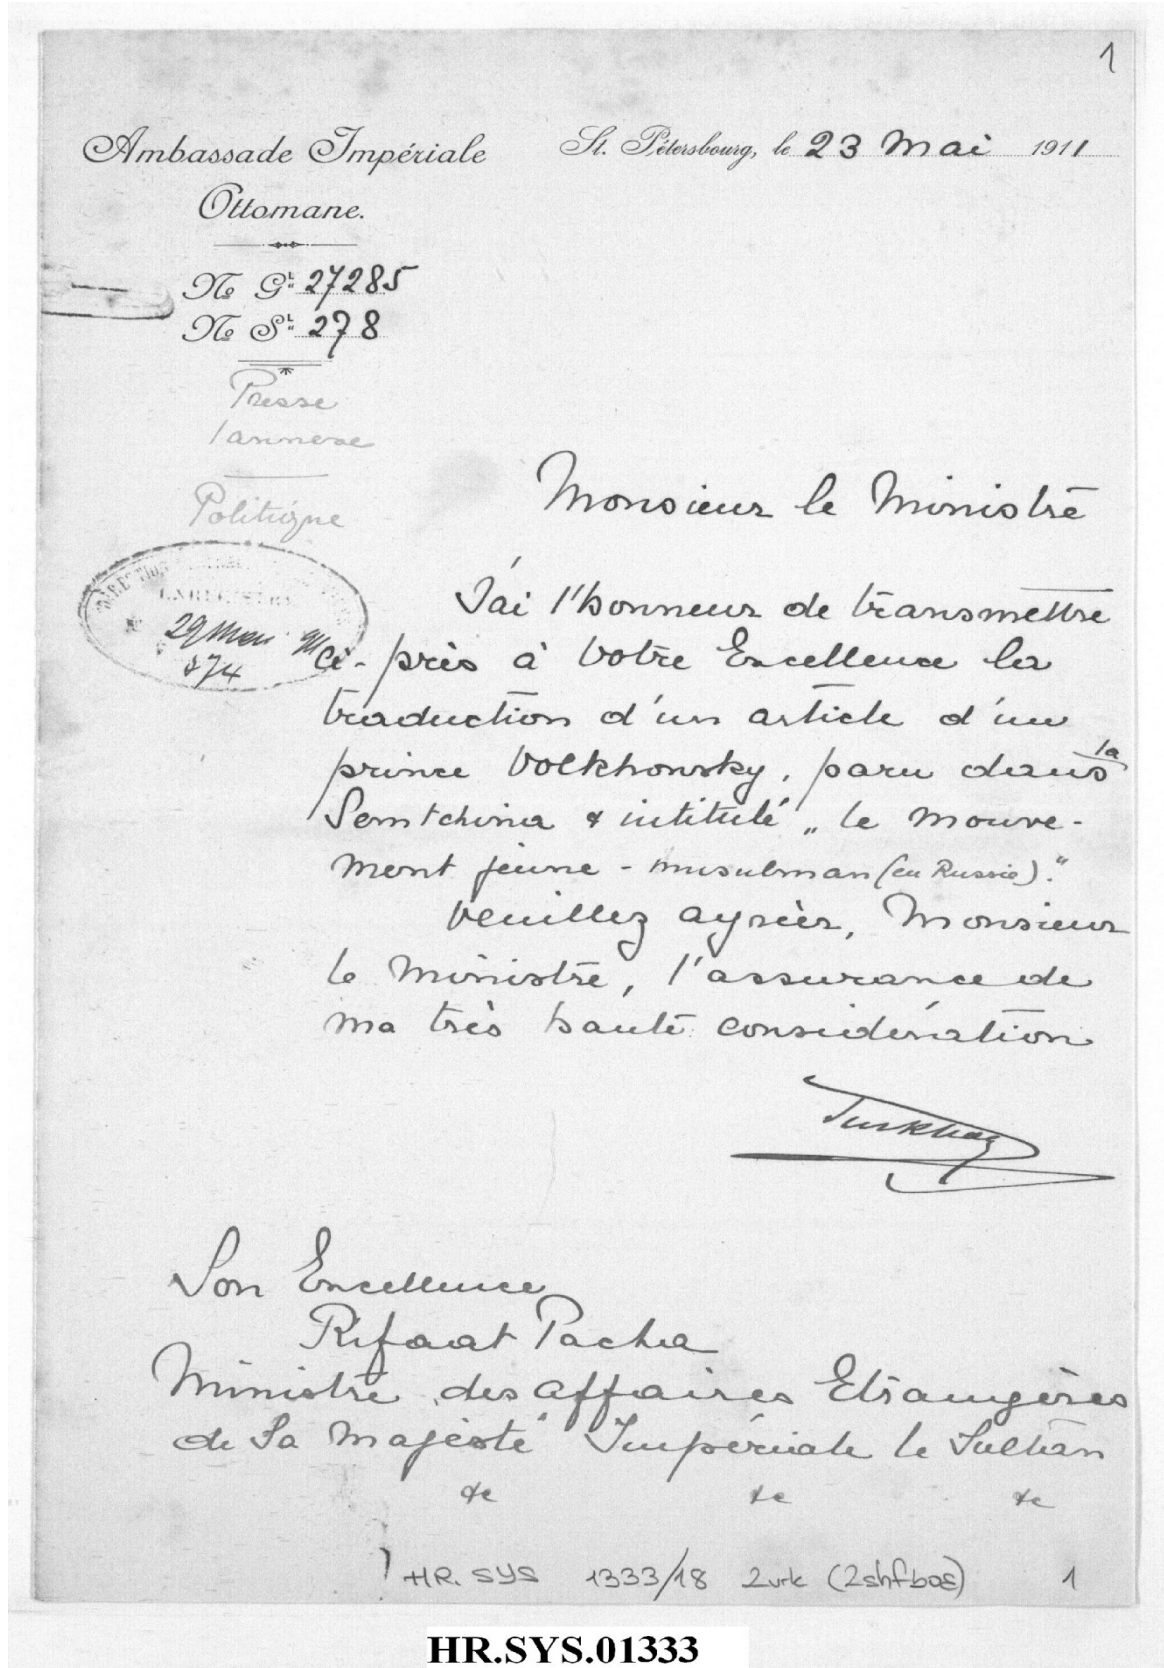 1
Ambassade Impériale
Ottomane.
St. Pétersbourg, le 23 Mai 1911
No Gl 27285
No Sl 278
Presse
1 annexe
Politique
ENREGISTRÉ
29 Mai 911
574
Monsieur le Ministre
J'ai l'honneur de transmettre
ci-près à Votre Excellence la
traduction d'un article d'un
prince Volkhonsky, paru dans la
Semtchina & intitulé „le mouve-
ment jeune-musulman (en Russie)."
Veuillez agréer, Monsieur
le Ministre, l'assurance de
ma très haute considération
Turkhan
Son Excellence
Rifaat Pacha
Ministre des affaires Etrangères
de Sa Majesté Impériale le Sultan
&c &c &c
HR. SYS 1333/18 2vrk (2shfboş) 1
HR.SYS.01333